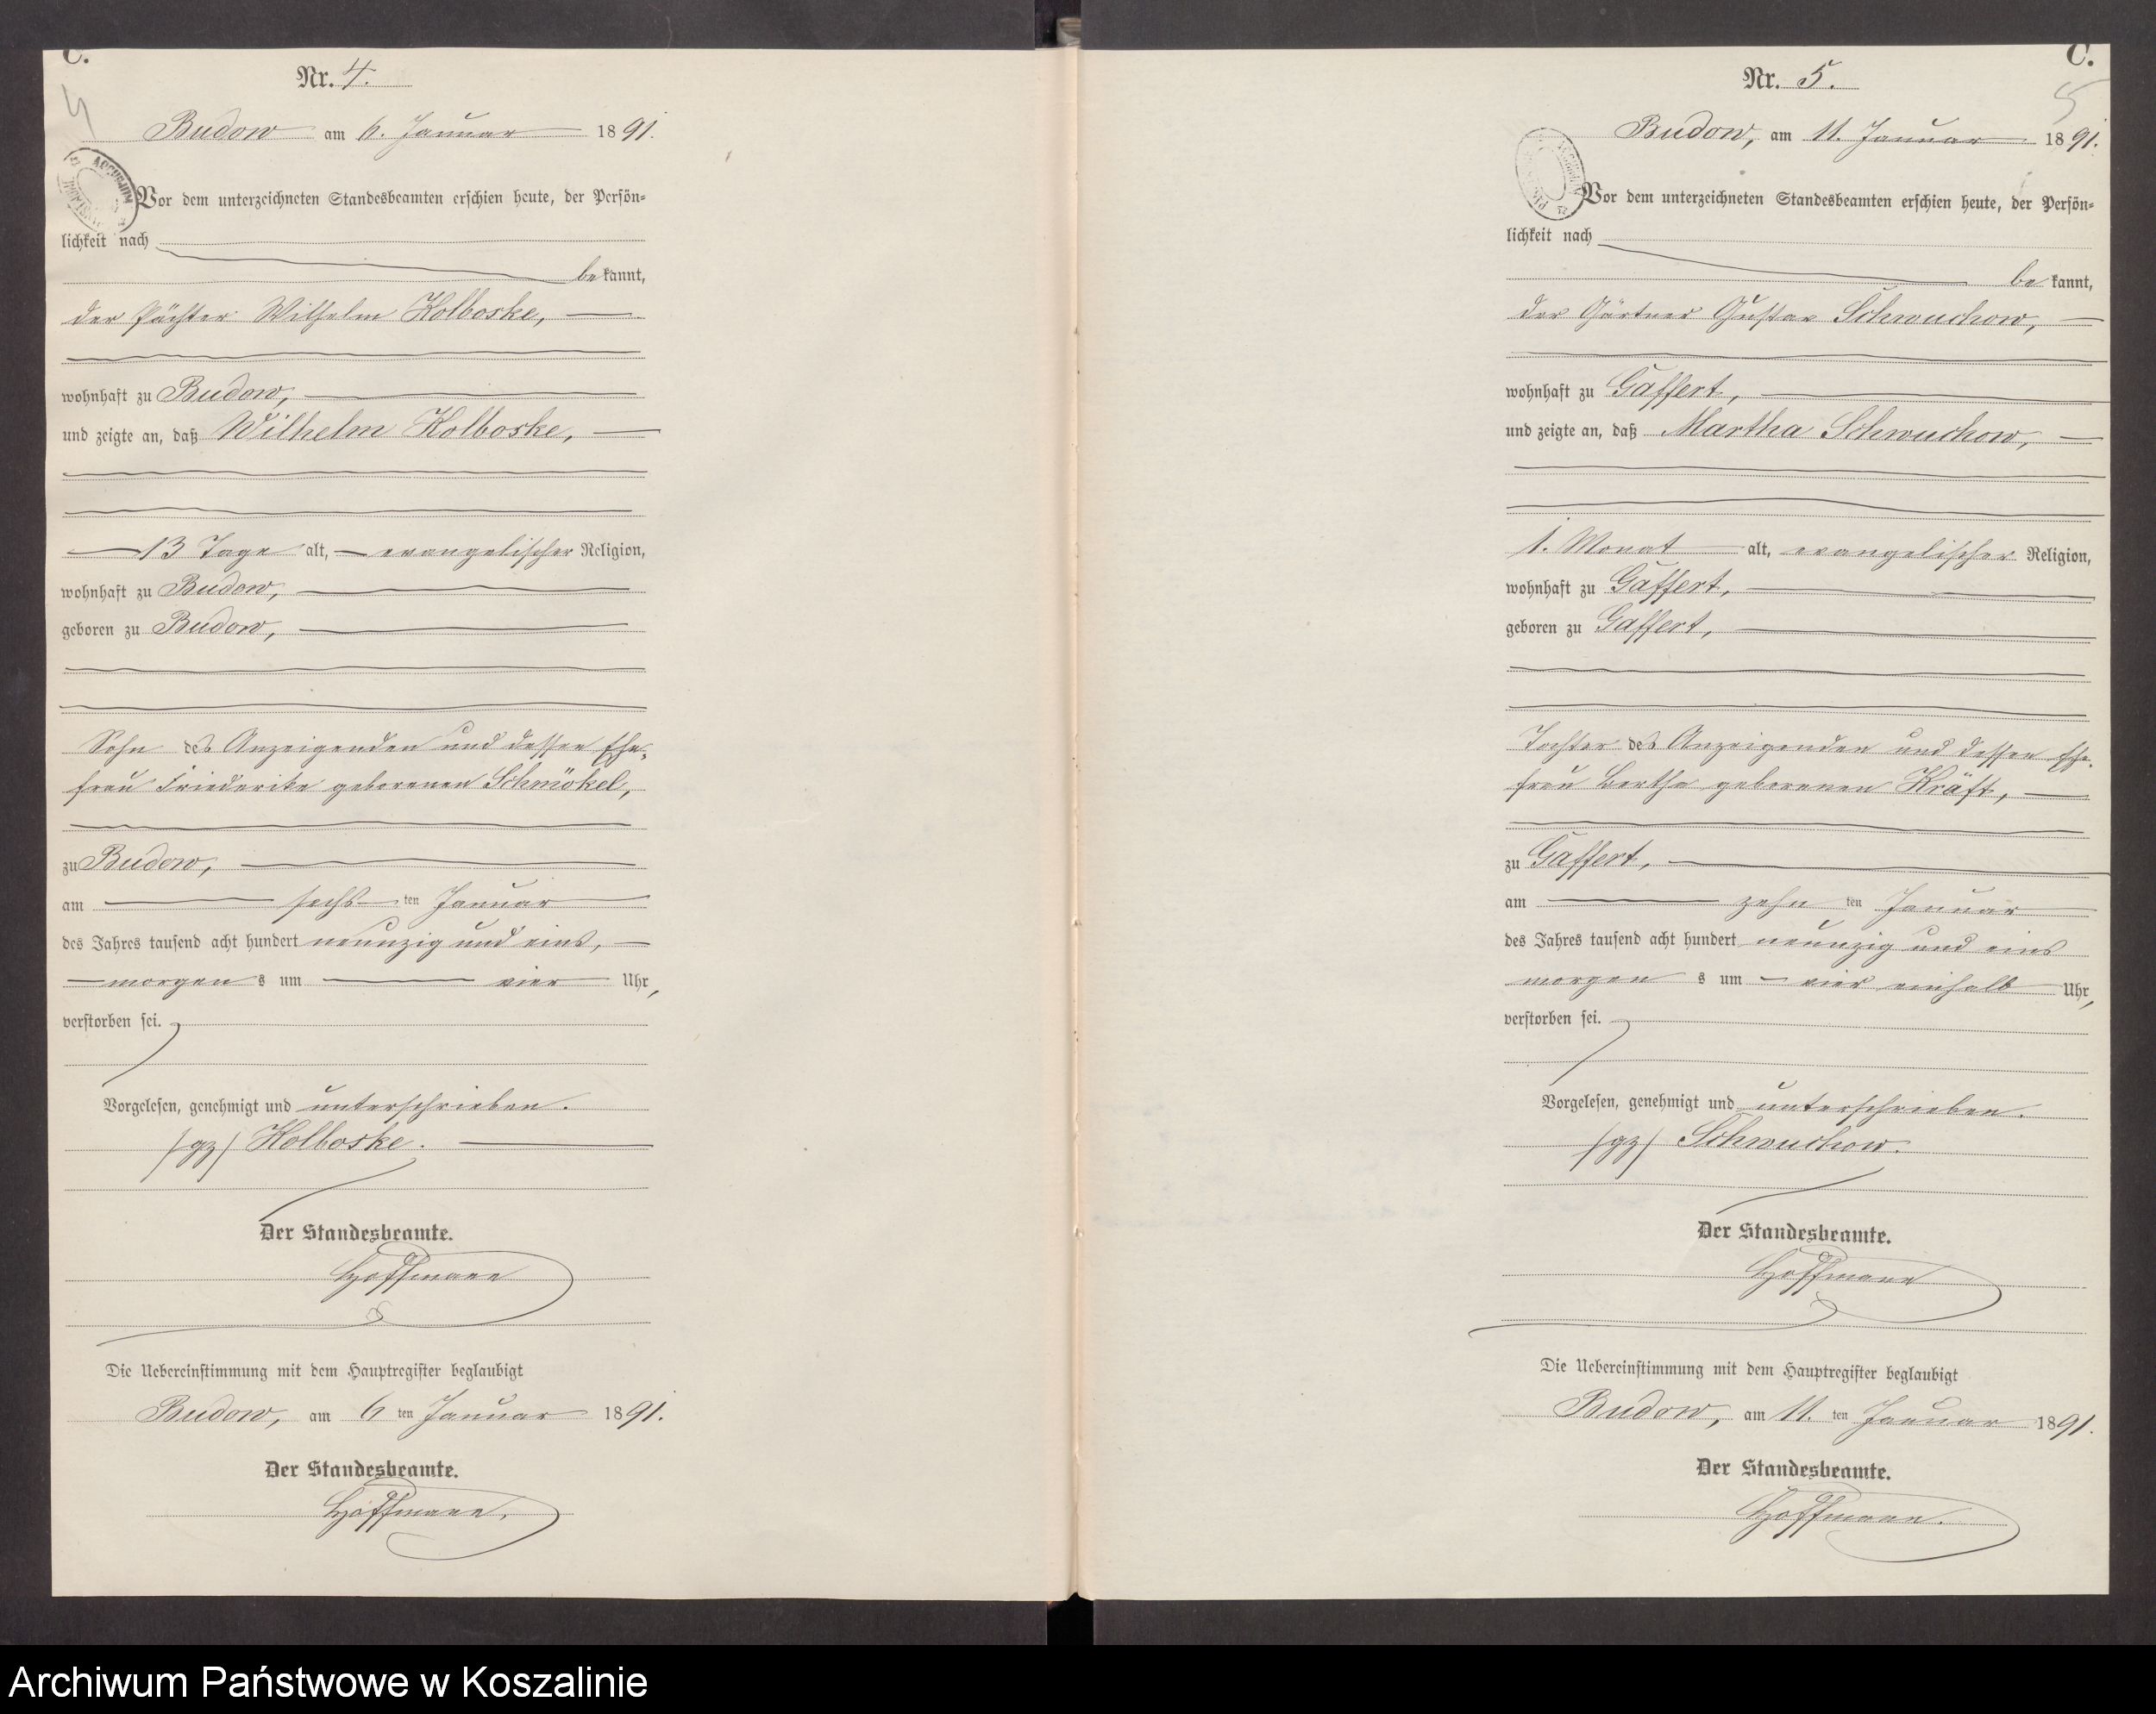 C.
Nr. 4.
4
Budow am 6. Januar 1891.
Vor dem unterzeichneten Standesbeamten erschien heute, der Persön-
lichkeit nach
bekannt,
der Pächter Wilhelm Kolboske,
wohnhaft zu Budow,
und zeigte an, daß Wilhelm Kolboske,
13 Tage alt, evangelischer Religion,
wohnhaft zu Budow,
geboren zu Budow,
Sohn des Anzeigenden und dessen Ehe-
frau Friederike geborenen Schmökel,
zu Budow,
am sechs ten Januar
des Jahres tausend acht hundert neunzig und eins,
morgen s um vier Uhr,
verstorben sei.
Vorgelesen, genehmigt und unterschrieben.
/gz/ Kolboske.
Der Standesbeamte.
Hoffmann
Die Uebereinstimmung mit dem Hauptregister beglaubigt
Budow, am 6 ten Januar 1891.
Der Standesbeamte.
Hoffmann.
C.
Nr. 5.
5
Budow, am 11. Januar 1891.
Vor dem unterzeichneten Standesbeamten erschien heute, der Persön-
lichkeit nach
be kannt,
der Gärtner Gustav Schwuchow,
wohnhaft zu Gaffert,
und zeigte an, daß Martha Schwuchow,
1. Monat alt, evangelischer Religion,
wohnhaft zu Gaffert,
geboren zu Gaffert,
Tochter des Anzeigenden und dessen Ehe-
frau Bertha geborenen Kräft,
zu Gaffert,
am zehn ten Januar
des Jahres tausend acht hundert neunzig und eins
morgen s um vier einhalb Uhr,
verstorben sei.
Vorgelesen, genehmigt und unterschrieben.
/gz/ Schwuchow.
Der Standesbeamte.
Hoffmann
Die Uebereinstimmung mit dem Hauptregister beglaubigt
Budow, am 11. ten Januar 1891.
Der Standesbeamte.
Hoffmann.
Archiwum Państwowe w Koszalinie